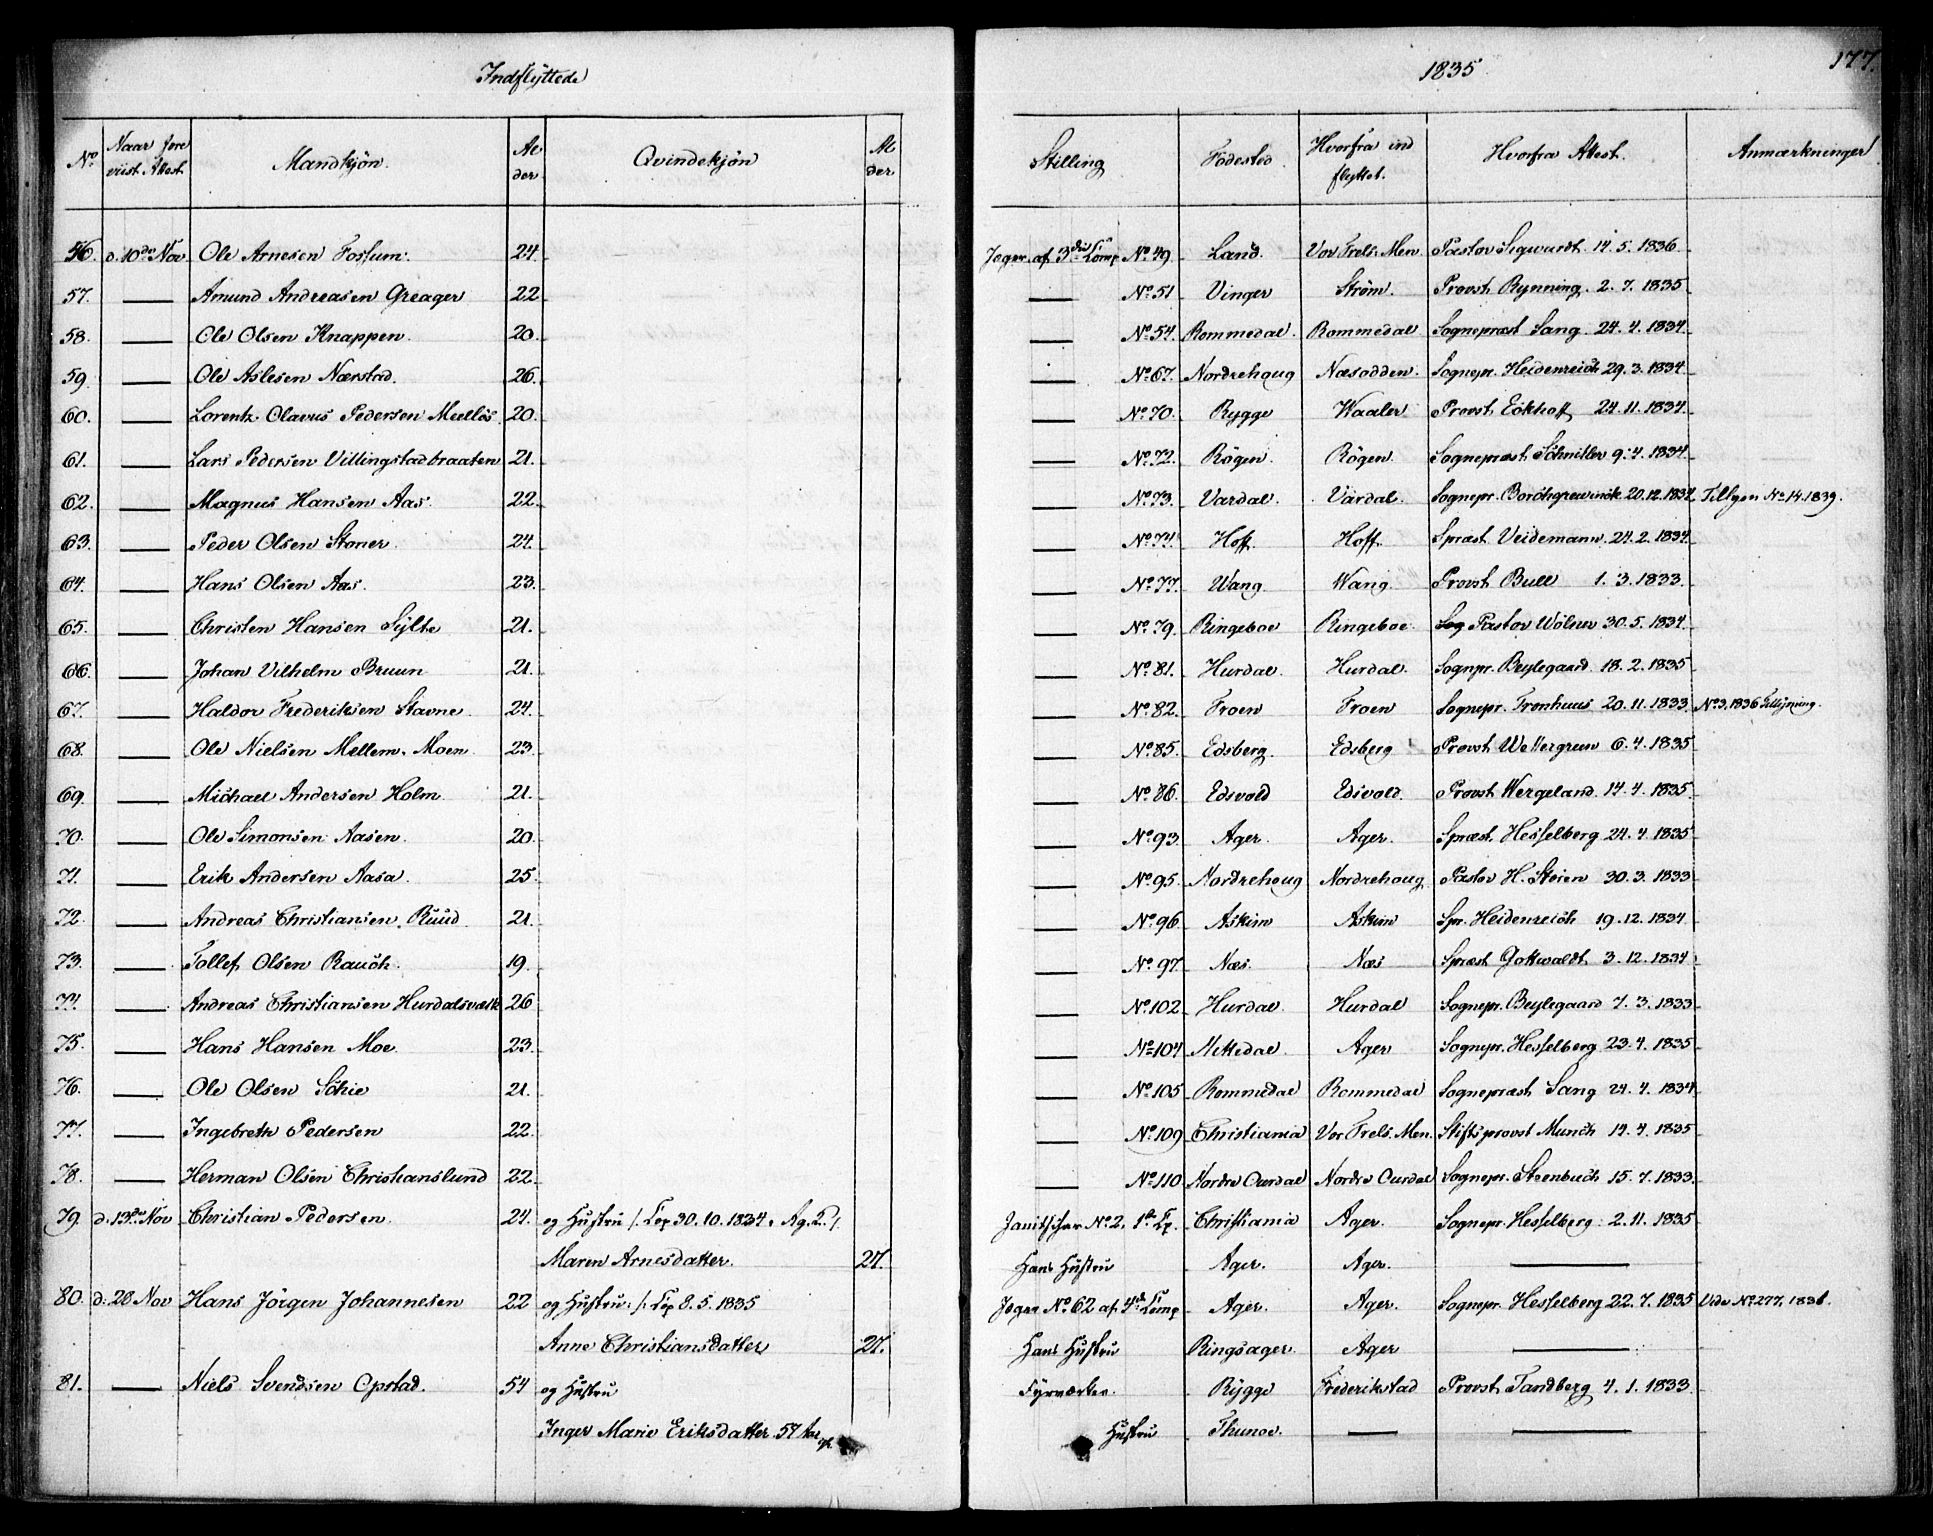 Indflyttede
1835
177.
No. Naar fore viist Attest. Mandkjön. Al der Qvindekjön Al der Stilling Födested Hvorfra ind flyttet. Hvorfra Attest. Anmærkninger
56. d. 10de Nov Ole Arnesen Fossum. 24. Jæger af 3die Comp No 49 Land. Vor Frels. Men Pastor Sigwardt 14. 5. 1836
57. — Amund Andreasen Greager 22 — No 51 Vinger Ström. Provst Rynning. 2. 7. 1835
58. — Ole Olsen Knappen. 20. — No 54 Rommedal. Rommedal Sognepræst Sang 24. 4. 1834
59. — Ole Aslesen Nærstad. 26. — No 67. Nordrehoug Næsodden. Sognepr. Heidenreich 29. 3. 1834
60. — Lorentz Olavus Pedersen Melløs 20. — No 70. Rygge Waaler Provst Eckhoff 24. 11. 1834
61. — Lars Pedersen Villingstadbraaten 21. — No 72. Rögen. Rögen. Sognepræst Schnitler 9. 4. 1834
62. — Magnus Hansen Aas. 22. — No 73. Vardal. Vardal. Sognepr. Borchgrewinck 20. 12. 1834 Tillgen No 14. 1839.
63. — Peder Olsen Stoner. 24. — No 74. Hoff. Hoff. Spræst Veidemann 24. 2. 1834
64. — Hans Olsen Aas. 23. — No 77. Wang. Wang. Provst Bull 1. 3. 1833.
65. — Christen Hansen Sylte 21. — No 79. Ringeboe Ringeboe Pastor Wolner 30. 5. 1834
66. — Johan Vilhelm Bruun 21. — No 81. Hurdal. Hurdal. Sognpr. Beylegaard 18. 2. 1835
67. — Haldor Frederiksen Stavne. 24. — No 82. Froen Froen Sognepr. Tronhuus 20. 11. 1833 No 3. 1836 Tillgning.
68. — Ole Nielsen Mellem-Moen. 23. — No 85. Edsberg. Edsberg Provst Wettergreen 6. 4. 1835
69. — Michael Andersen Holm. 21. — No 86. Edsvold Edsvold. Provst Wergeland. 14. 4. 1835.
70. — Ole Simonsen Aasen. 20. — No 93. Ager. Ager. Spræst. Hesselberg 24. 4. 1835
71. — Erik Andersen Aasa. 25. — No 95. Nordrehoug Nordrehoug. Pastor H. Steien 30. 3. 1833
72. — Andreas Christiansen Ruud. 21. — No 96 Askim Askim Spr. Heidenreich 19. 12. 1834
73. — Tollef Olsen Rauch. 19. — No 97. Næs. Næs Spræst Gottwaldt 3. 12. 1834
74. — Andreas Christiansen Hurdalsværk 26 — No 102 Hurdal. Hurdal Sognepr. Beylegaard 7. 3. 1833
75. — Hans Hansen Moe. 23. — No 104 Nittedal. Ager Sognepr. Hesselberg 23. 4. 1835
76. — Ole Olsen Schie 21. — No 105 Rommedal Rommedal Sognepræst Sang 24. 4. 1834
77. — Ingebreth Pedersen 22. — No 109 Christiania Vor Frels. Men. Stiftsprovst Munch 14. 4. 1835
78. — Herman Olsen Christianslund 22. — No 110 Nordre Ourdal Nordre Ourdal Sognepr. Steenbuch 15. 7. 1833.
79. d. 13de Nov Christian Pedersen. 24. og Hustru /: Cop 30. 10. 1834. Ag. K. :/ Janitschar No 2. 1ste Cp. Christiania Ager. Sognepr. Hesselberg. 2. 11. 1835
Maren Arnesdatter. 27. Hans Hustru Ager. Ager. —
80. d. 28 Nov Hans Jörgen Johannesen 22 og Hustru. /: Cop 8. 5. 1835 Jæger No 62 af 4de Comp Ager. Ager. Sognepr. Hesselberg 22. 7. 1835 Vide No 277, 1836.
Anne Christiansdatter 27. Hans Hustru Ringsager. Ager —
81. — Niels Svendsen Opstad. 54 og Hustru Fyrværker. Rygge Frederikstad Provst Tandberg 4. 1. 1833.
Inger Marie Eriksdatter. 57 Aar gl. Hustru Thunoe. — —